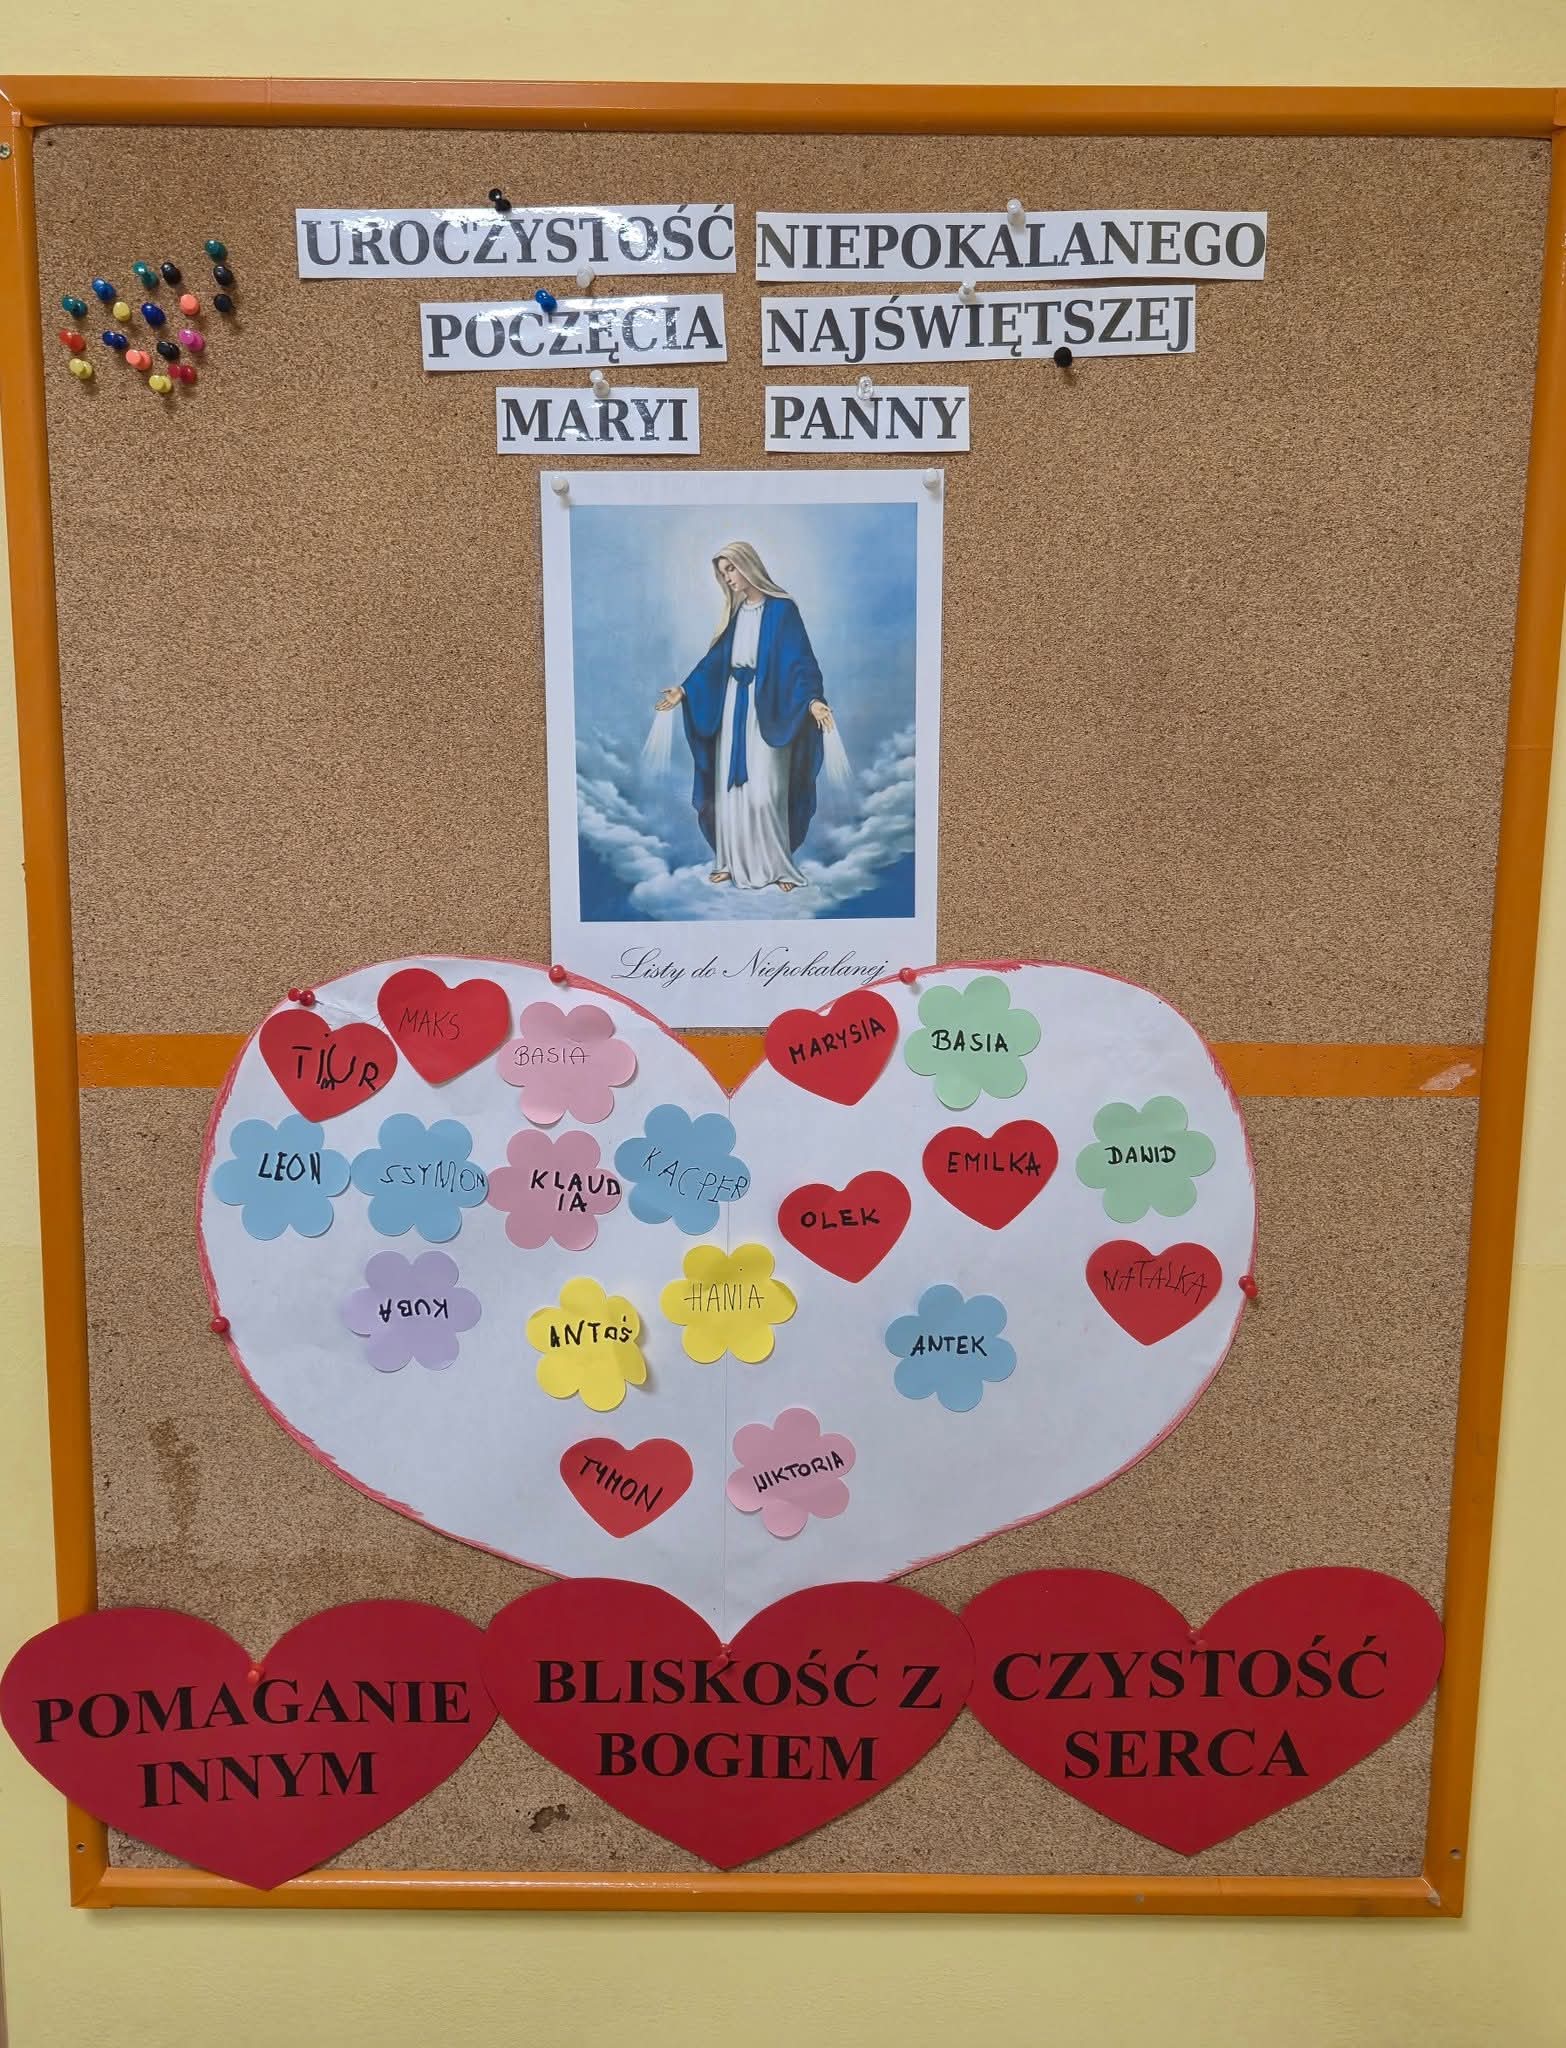 UROCZYSTOŚĆ NIEPOKALANEGO
POCZĘCIA NAJŚWIĘTSZEJ
MARYI PANNY
Listy do Niepokalanej
TIMUR
MAKS
BASIA
MARYSIA
BASIA
LEON
SSYMON
KLAUD
IA
KACPER
OLEK
EMILKA
DAWID
KUBA
ANTOŚ
HANIA
ANTEK
NATALKA
TYMON
WIKTORIA
POMAGANIE
INNYM
BLISKOŚĆ Z
BOGIEM
CZYSTOŚĆ
SERCA